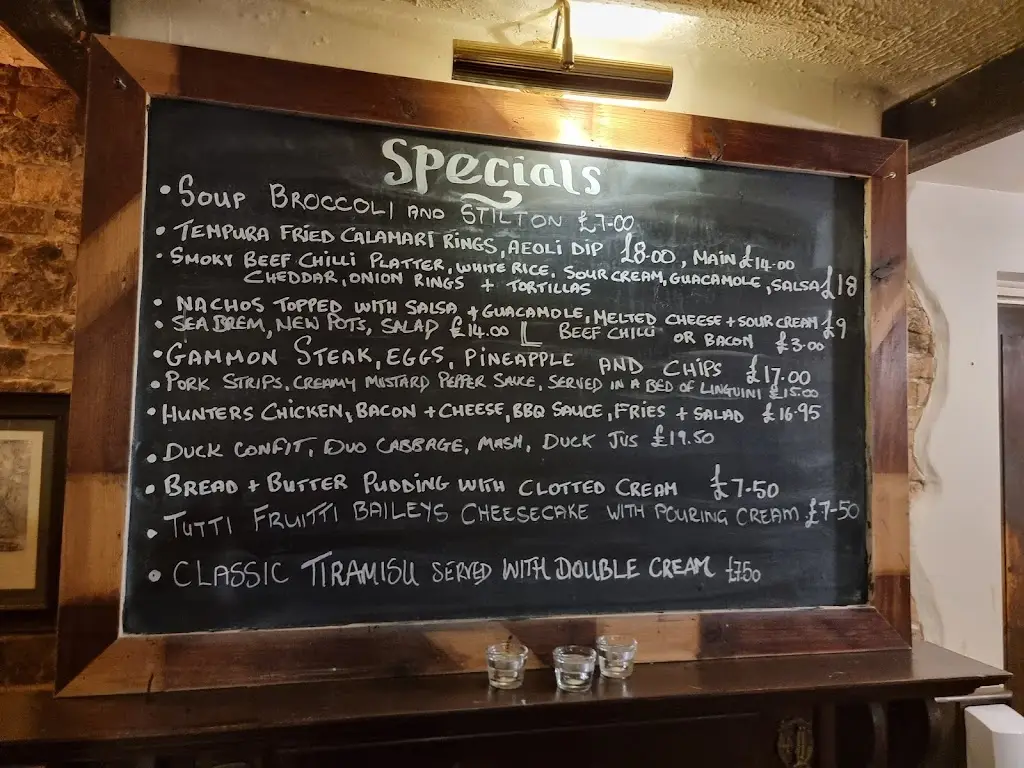 Specials
• SOUP BROCCOLI AND STILTON £7-00
• TEMPURA FRIED CALAMARI RINGS, AEOLI DIP £8-00, MAIN £14-00
• SMOKY BEEF CHILLI PLATTER, WHITE RICE, SOUR CREAM, GUACAMOLE, SALSA £18
CHEDDAR, ONION RINGS + TORTILLAS
• NACHOS TOPPED WITH SALSA + GUACAMOLE, MELTED CHEESE + SOUR CREAM £9
BEEF CHILLI OR BACON £3-00
• SEA BREM, NEW POTS, SALAD £14.00
• GAMMON STEAK, EGGS, PINEAPPLE AND CHIPS £17.00
• PORK STRIPS, CREAMY MUSTARD PEPPER SAUCE, SERVED IN A BED OF LINGUINI £15.00
• HUNTERS CHICKEN, BACON + CHEESE, BBQ SAUCE, FRIES + SALAD £16-95
• DUCK CONFIT, DUO CABBAGE, MASH, DUCK JUS £19.50
• BREAD + BUTTER PUDDING WITH CLOTTED CREAM £7-50
• TUTTI FRUITTI BAILEYS CHEESECAKE WITH POURING CREAM £7-50
• CLASSIC TIRAMISU SERVED WITH DOUBLE CREAM £750